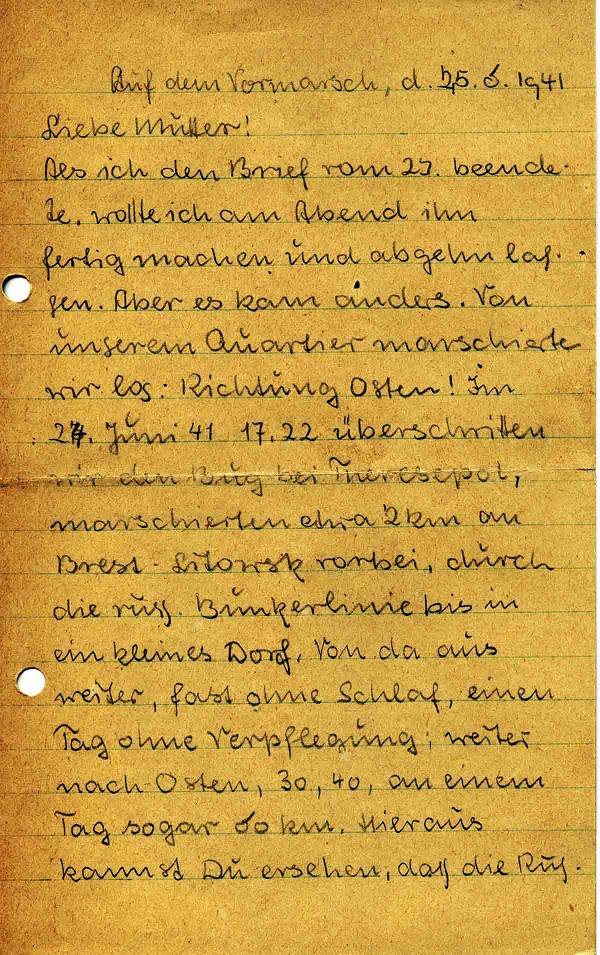 Auf dem Vormarsch, d. 25.6.1941
Liebe Mutter!
Als ich den Brief vom 23. beende-
te, wollte ich am Abend ihn
fertig machen und abgehn las-
sen. Aber es kam anders. Von
unserem Quartier marschierte
wir los: Richtung Osten! Im
24. Juni 41 17.22 überschritten
wir den Bug bei Theresepol,
marschierten etwa 2 km an
Brest-Litowsk vorbei, durch
die russ. Bunkerlinie bis in
ein kleines Dorf. Von da aus
weiter, fast ohne Schlaf, einen
Tag ohne Verpflegung; weiter
nach Osten, 30, 40, an einem
Tag sogar 60 km. Hieraus
kannst Du ersehen, daß die Rus-